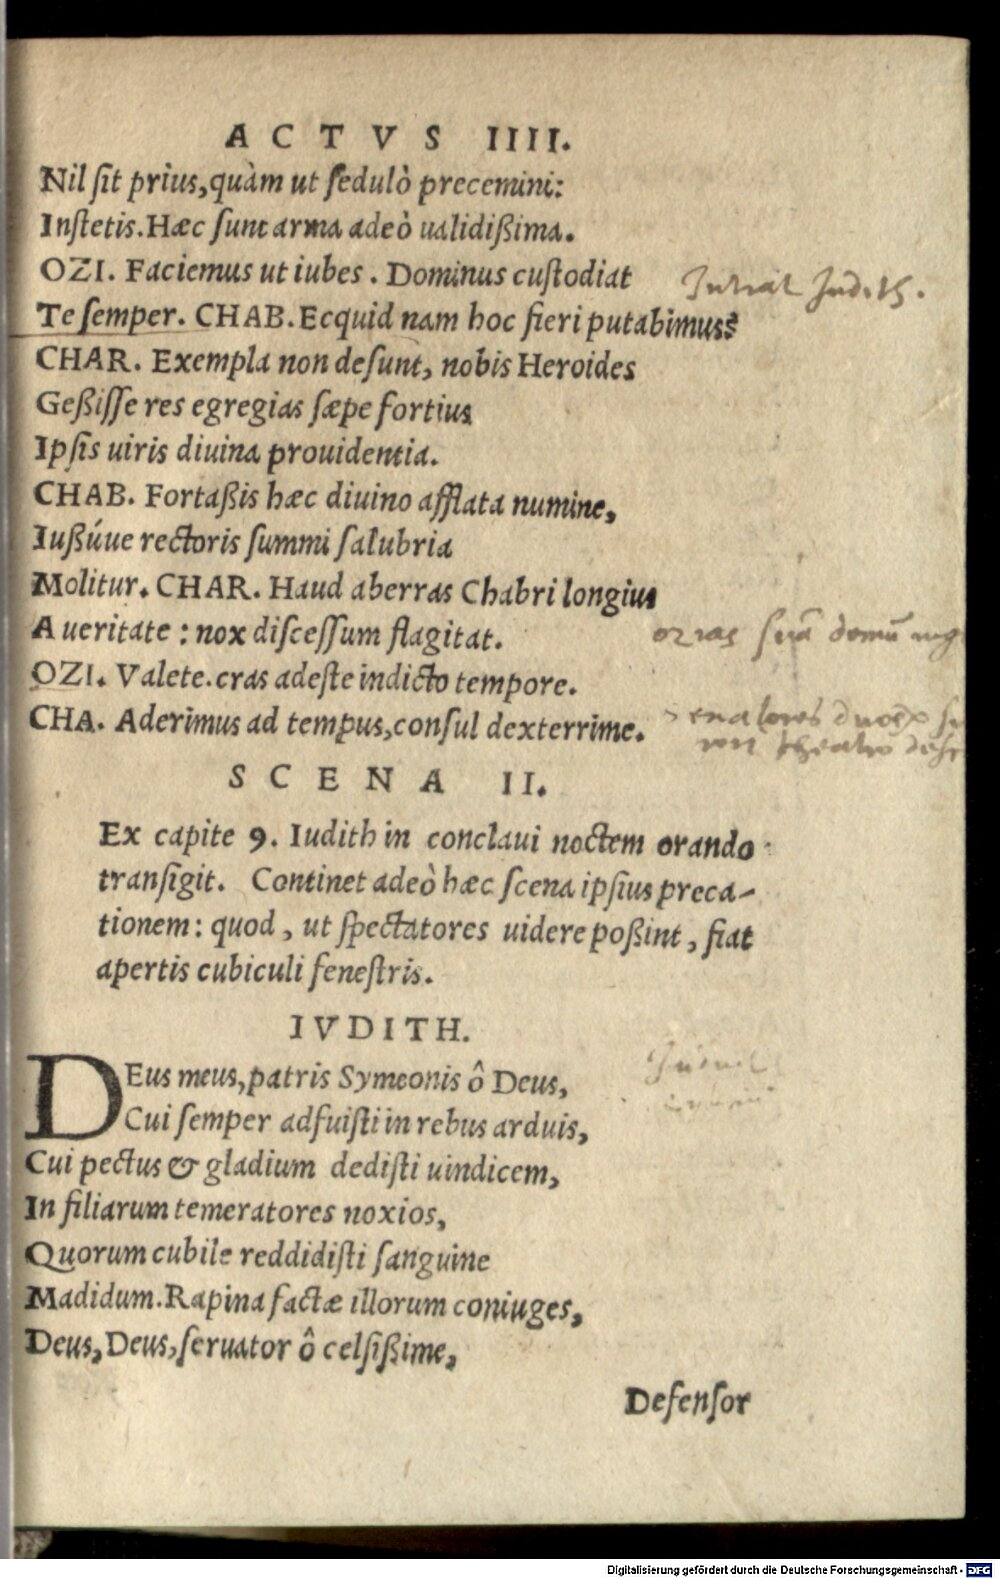 ACTVS IIII.
Nil ſit prius, quàm ut ſedulò precemini:
Inſtetis. Hæc ſunt arma adeò ualidißima.
OZI. Faciemus ut iubes. Dominus cuſtodiat
Intrat Judith.
Te ſemper. CHAB. Ecquid nam hoc fieri putabimus?
CHAR. Exempla non deſunt, nobis Heroides
Geßiſſe res egregias ſæpe fortius
Ipſis uiris diuina prouidentia.
CHAB. Fortaßis hæc diuino afflata numine,
Iußúue rectoris ſummi ſalubria
Molitur. CHAR. Haud aberras Chabri longius
A ueritate: nox diſceſſum flagitat.
ozias ſuā domū
OZI. Valete. cras adeſte indicto tempore.
CHA. Aderimus ad tempus, conſul dexterrime.
theatro
SCENA II.
Ex capite 9. Iudith in conclaui noctem orando
tranſigit. Continet adeò hæc ſcena ipſius preca-
tionem: quod, ut ſpectatores uidere poßint, fiat
apertis cubiculi feneſtris.
IVDITH.
DEus meus, patris Symeonis ô Deus,
Cui ſemper adfuiſti in rebus arduis,
Cui pectus & gladium dediſti uindicem,
In filiarum temeratores noxios,
Quorum cubile reddidiſti ſanguine
Madidum. Rapina factæ illorum coniuges,
Deus, Deus, ſeruator ô celſißime,
Defenſor
Digitalisierung gefördert durch die Deutsche Forschungsgemeinschaft - DFG